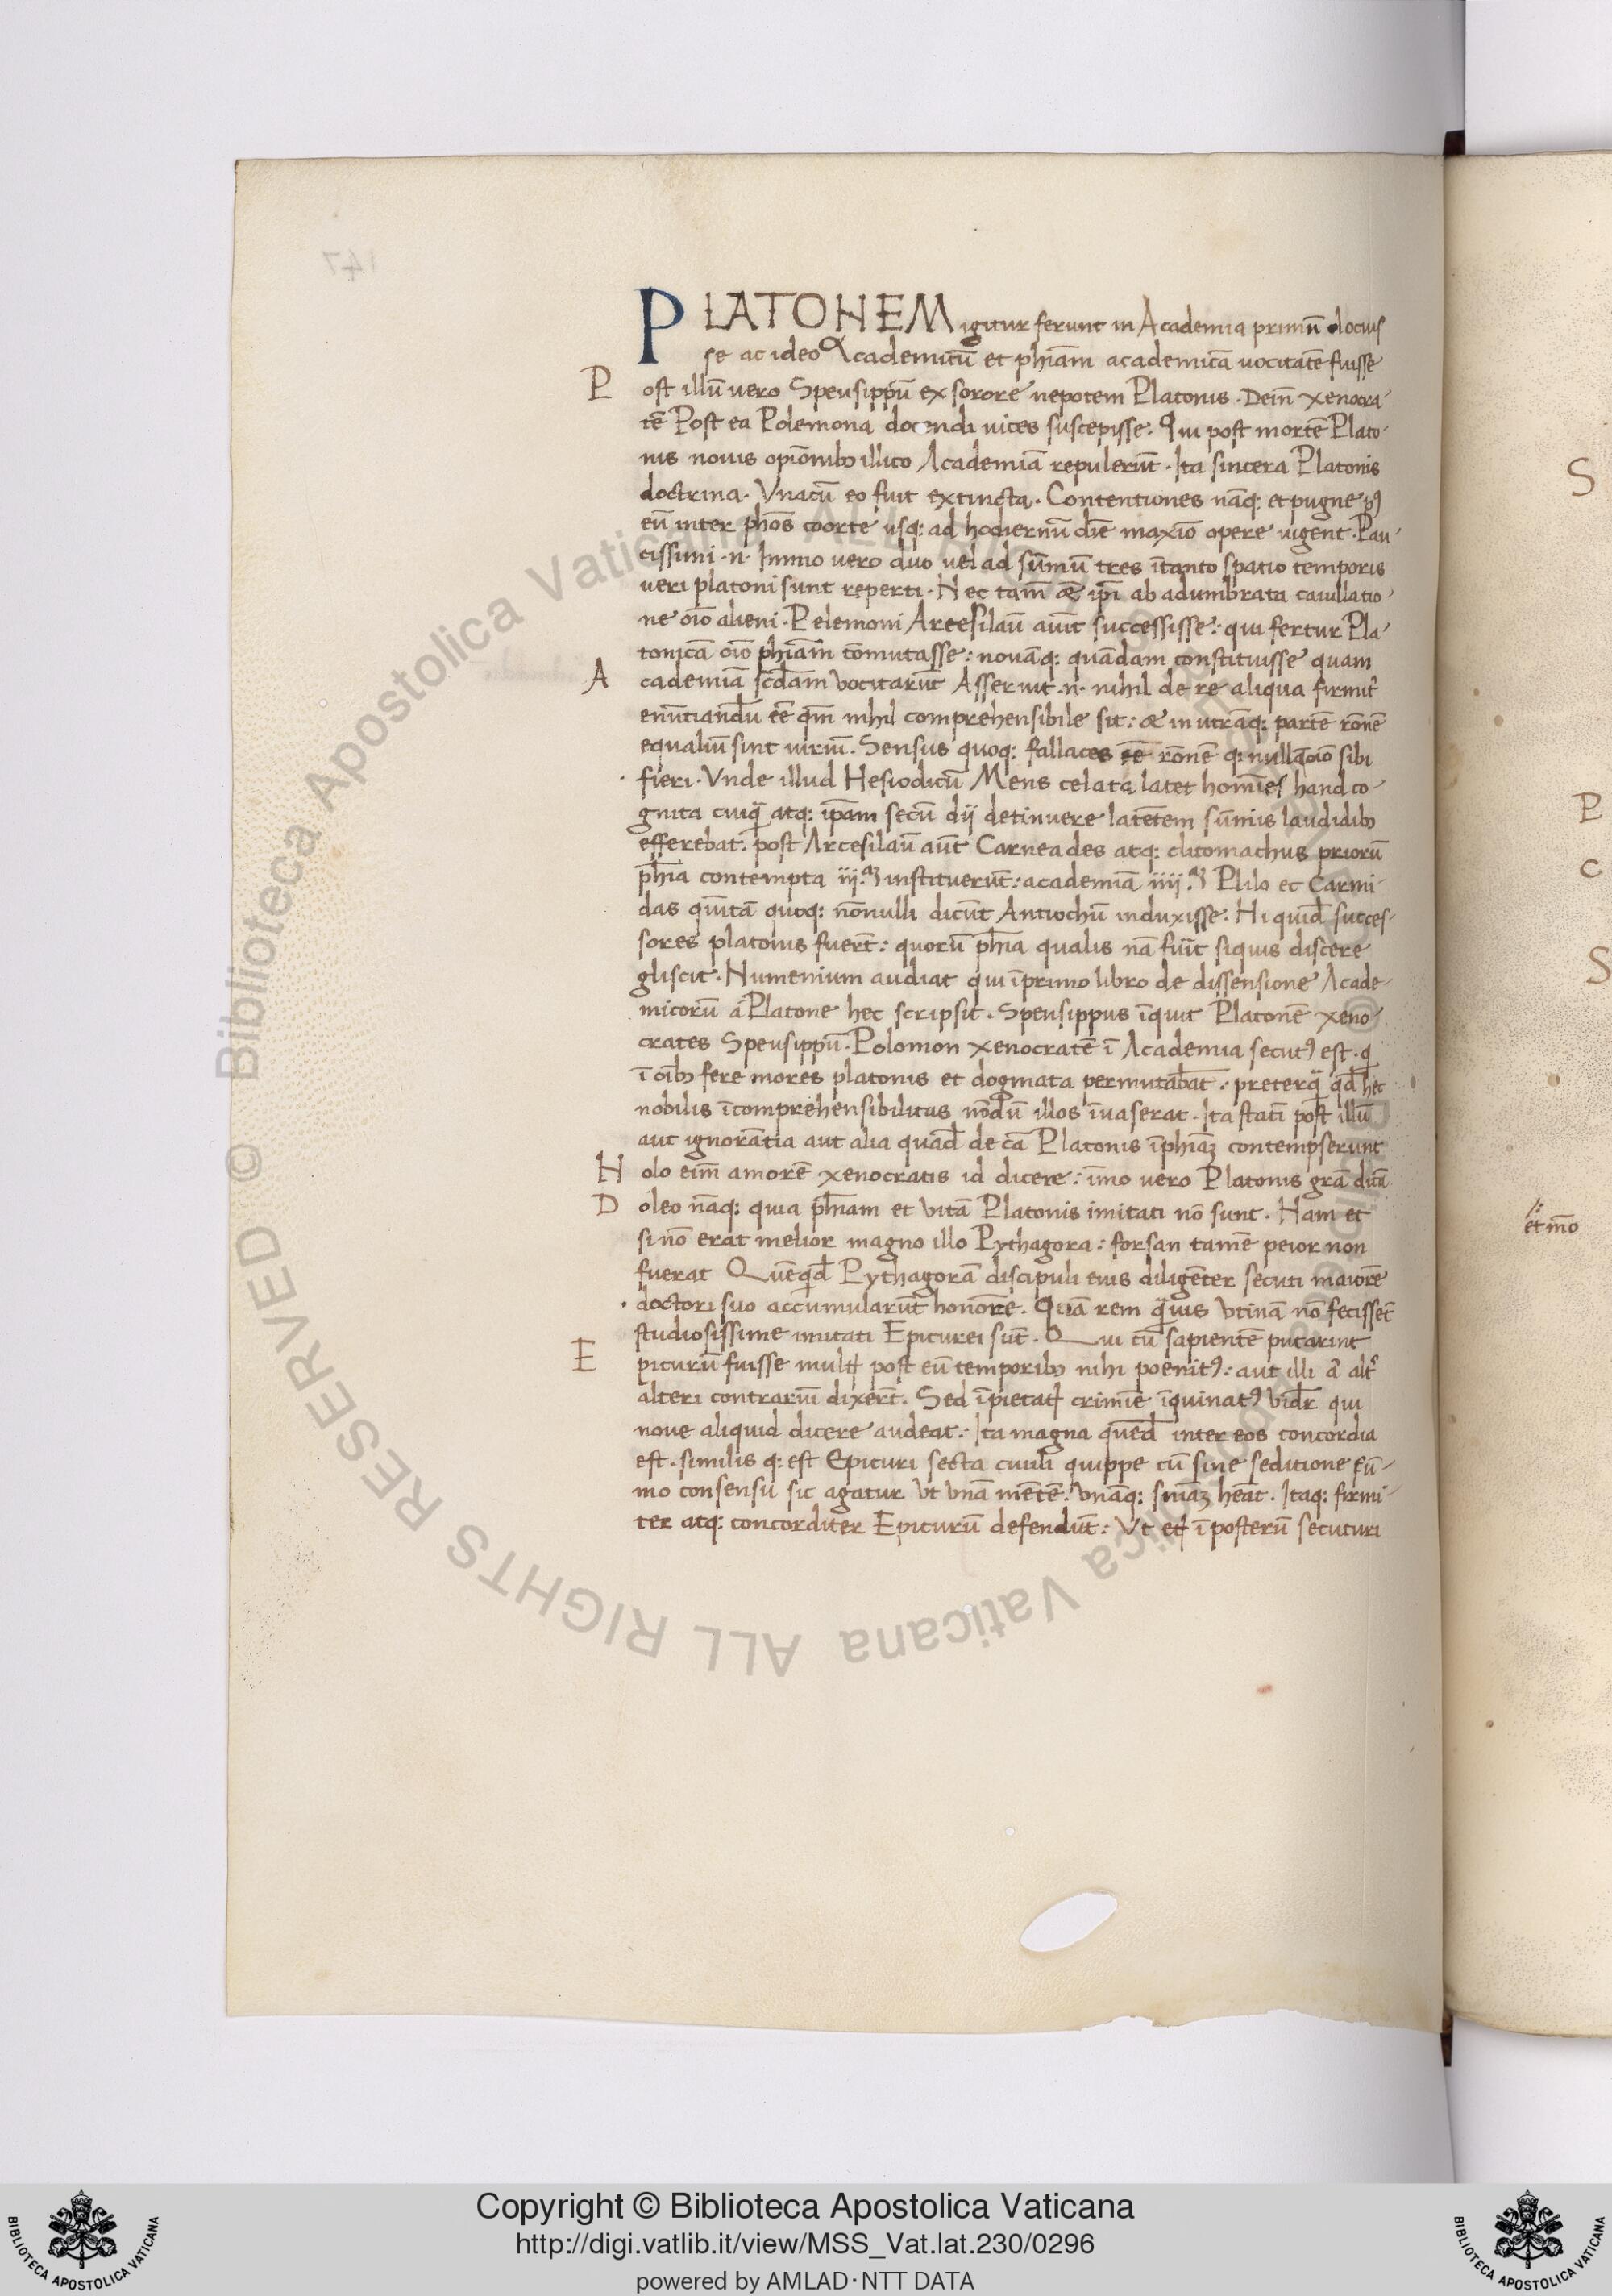 PLATONEM igitur ferunt in Academia primū docuis
se ac ideo Academicū et phiam academicā uocitatē fuisse
Post illū uero Speusippū ex sorore nepotem Platonis. Dein̄ xenocra-
tē Post ea Polemona docendi uices suscepisse. Qui post mortē Plato-
nis nouis opīonibꝫ illico Academiā repulerūt. Ita sincera Platonis
doctrina. Vnacū eo fuit extincta. Contentiones nāq: et pugne
eū inter phōs coorte usq: ad hodiernū diē maxīo opere uigent. Pau-
cissimi .n. Immo uero duo uel ad sūmū tres ītanto spatio temporis
ueri platoni sunt reperti. Nec tam̄ & ip̄i ab adumbrata cauillatio-
ne oīo alieni. Pelemoni Arcesilaū aiūt successisse: qui fertur Pla-
tonicā oīo phiam̄ cōmutasse: nouāq: quādam constituisse quam
Academiā scd̄am vocitarūt Asseruit .n. nihil de re aliqua firmit̄
enūtiandū eē qm̄ nihil comprehensibile sit: & in utrāq: partē rōnē
equaliū sint uiriū. Sensus quoq: fallaces eē rōnē q: nulla oīo sibi
fieri. Vnde illud Hesiodicū Mens celata latet homīes haud co-
gnita cuiq̄ atq: ip̄am secū dij detinuere latētem sūmis laudidibꝫ
efferebat. post Arcesilaū aūt Carneades atq: clitomachus priorū
ph̄ia contempta iij.ᵃꝫ instituerūt: academiā iiij.ᵃꝫ Plilo et Carmi-
das quītā quoq: nōnulli dicūt Antiochū induxisse. Hi quid̄ succes-
sores platonis fuert̄: quorū ph̄ia qualis nā fuīt siquis discere
gliscit. Numenium audiat qui īprimo libro de dissensione Acade-
micorū á Platone hec scripsit. Speusippus īquit Platonē xeno-
crates Speusippū. Polomon xenocratē ī Academia secutꝰ est. q
ī oībꝫ fere mores platonis et dogmata permutabāt: preterq̄ qd̄ hec
nobilis īcomprehensibilitas nōdū illos īuaserat. Ita statī post illū
aut ignorātia aut alia quad̄ de cā Platonis īphiaꝫ contempserunt
Nolo eīm amorē xenocratis id dicere: īmo uero Platonis grā dicā
Doleo nāq: quia ph̄iam et vitā Platonis imitati nō sunt. Nam et
si nō erat melior magno illo Pythagora: forsan tamē peior non
fuerat Quēqd̄ Pythagorā discipuli eius diligēter secuti maiorē
doctori suo accumularūt honorē. Quā rem q̄uis vtinā nō fecisset̄
studiosissime imitati Epicurei sūt. Qui cū sapientē putarint
Epicurū fuisse mult post eū temporibꝫ nihi poenitꝰ: aut illi á alt̄
alteri contrariū dixert̄. Sed īpietat crimīe īquinatꝰ vid̄r qui
noue aliquid dicere audeat: Ita magna qued̄ inter eos concordia
est. similis q: est Epicuri secta ciuili quippe cū sine seditione cū-
mo consensu sic agatur vt vnā mētē: vnāq: sn̄iaꝫ heāt. Itaq: firmi-
ter atq: concorditer Epicurū defendūt: Vt et ī posterū secuturi
S
P
C
S
et īmo
147
© Biblioteca Apostolica Vaticana ALL RIGHTS RESERVED
Copyright © Biblioteca Apostolica Vaticana
http://digi.vatlib.it/view/MSS_Vat.lat.230/0296
powered by AMLAD·NTT DATA
BIBLIOTECA APOSTOLICA VATICANA
BIBLIOTECA APOSTOLICA VATICANA